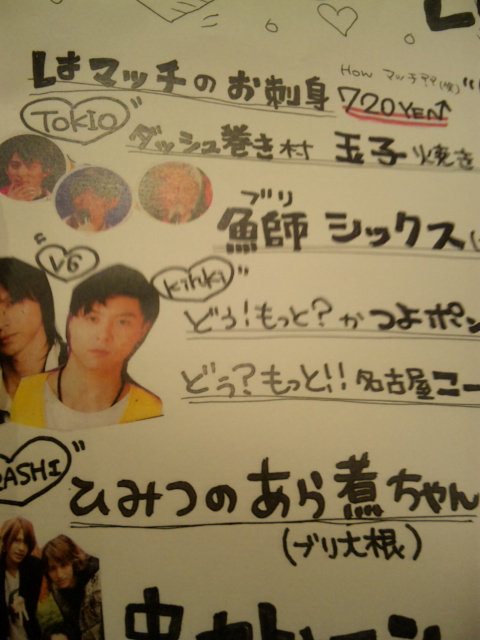 Lまマッチのお刺身 How マッチ??(笑)
720YEN↑
"TOKIO"
ダッシュ巻き村 玉子焼き
ブリ
魚師 シックス
"V6
Kinki"
どう!もっと?かつよポン
どう?もっと!!名古屋コー
RASHI"
ひみつのあら煮ちゃん
(ブリ大根)